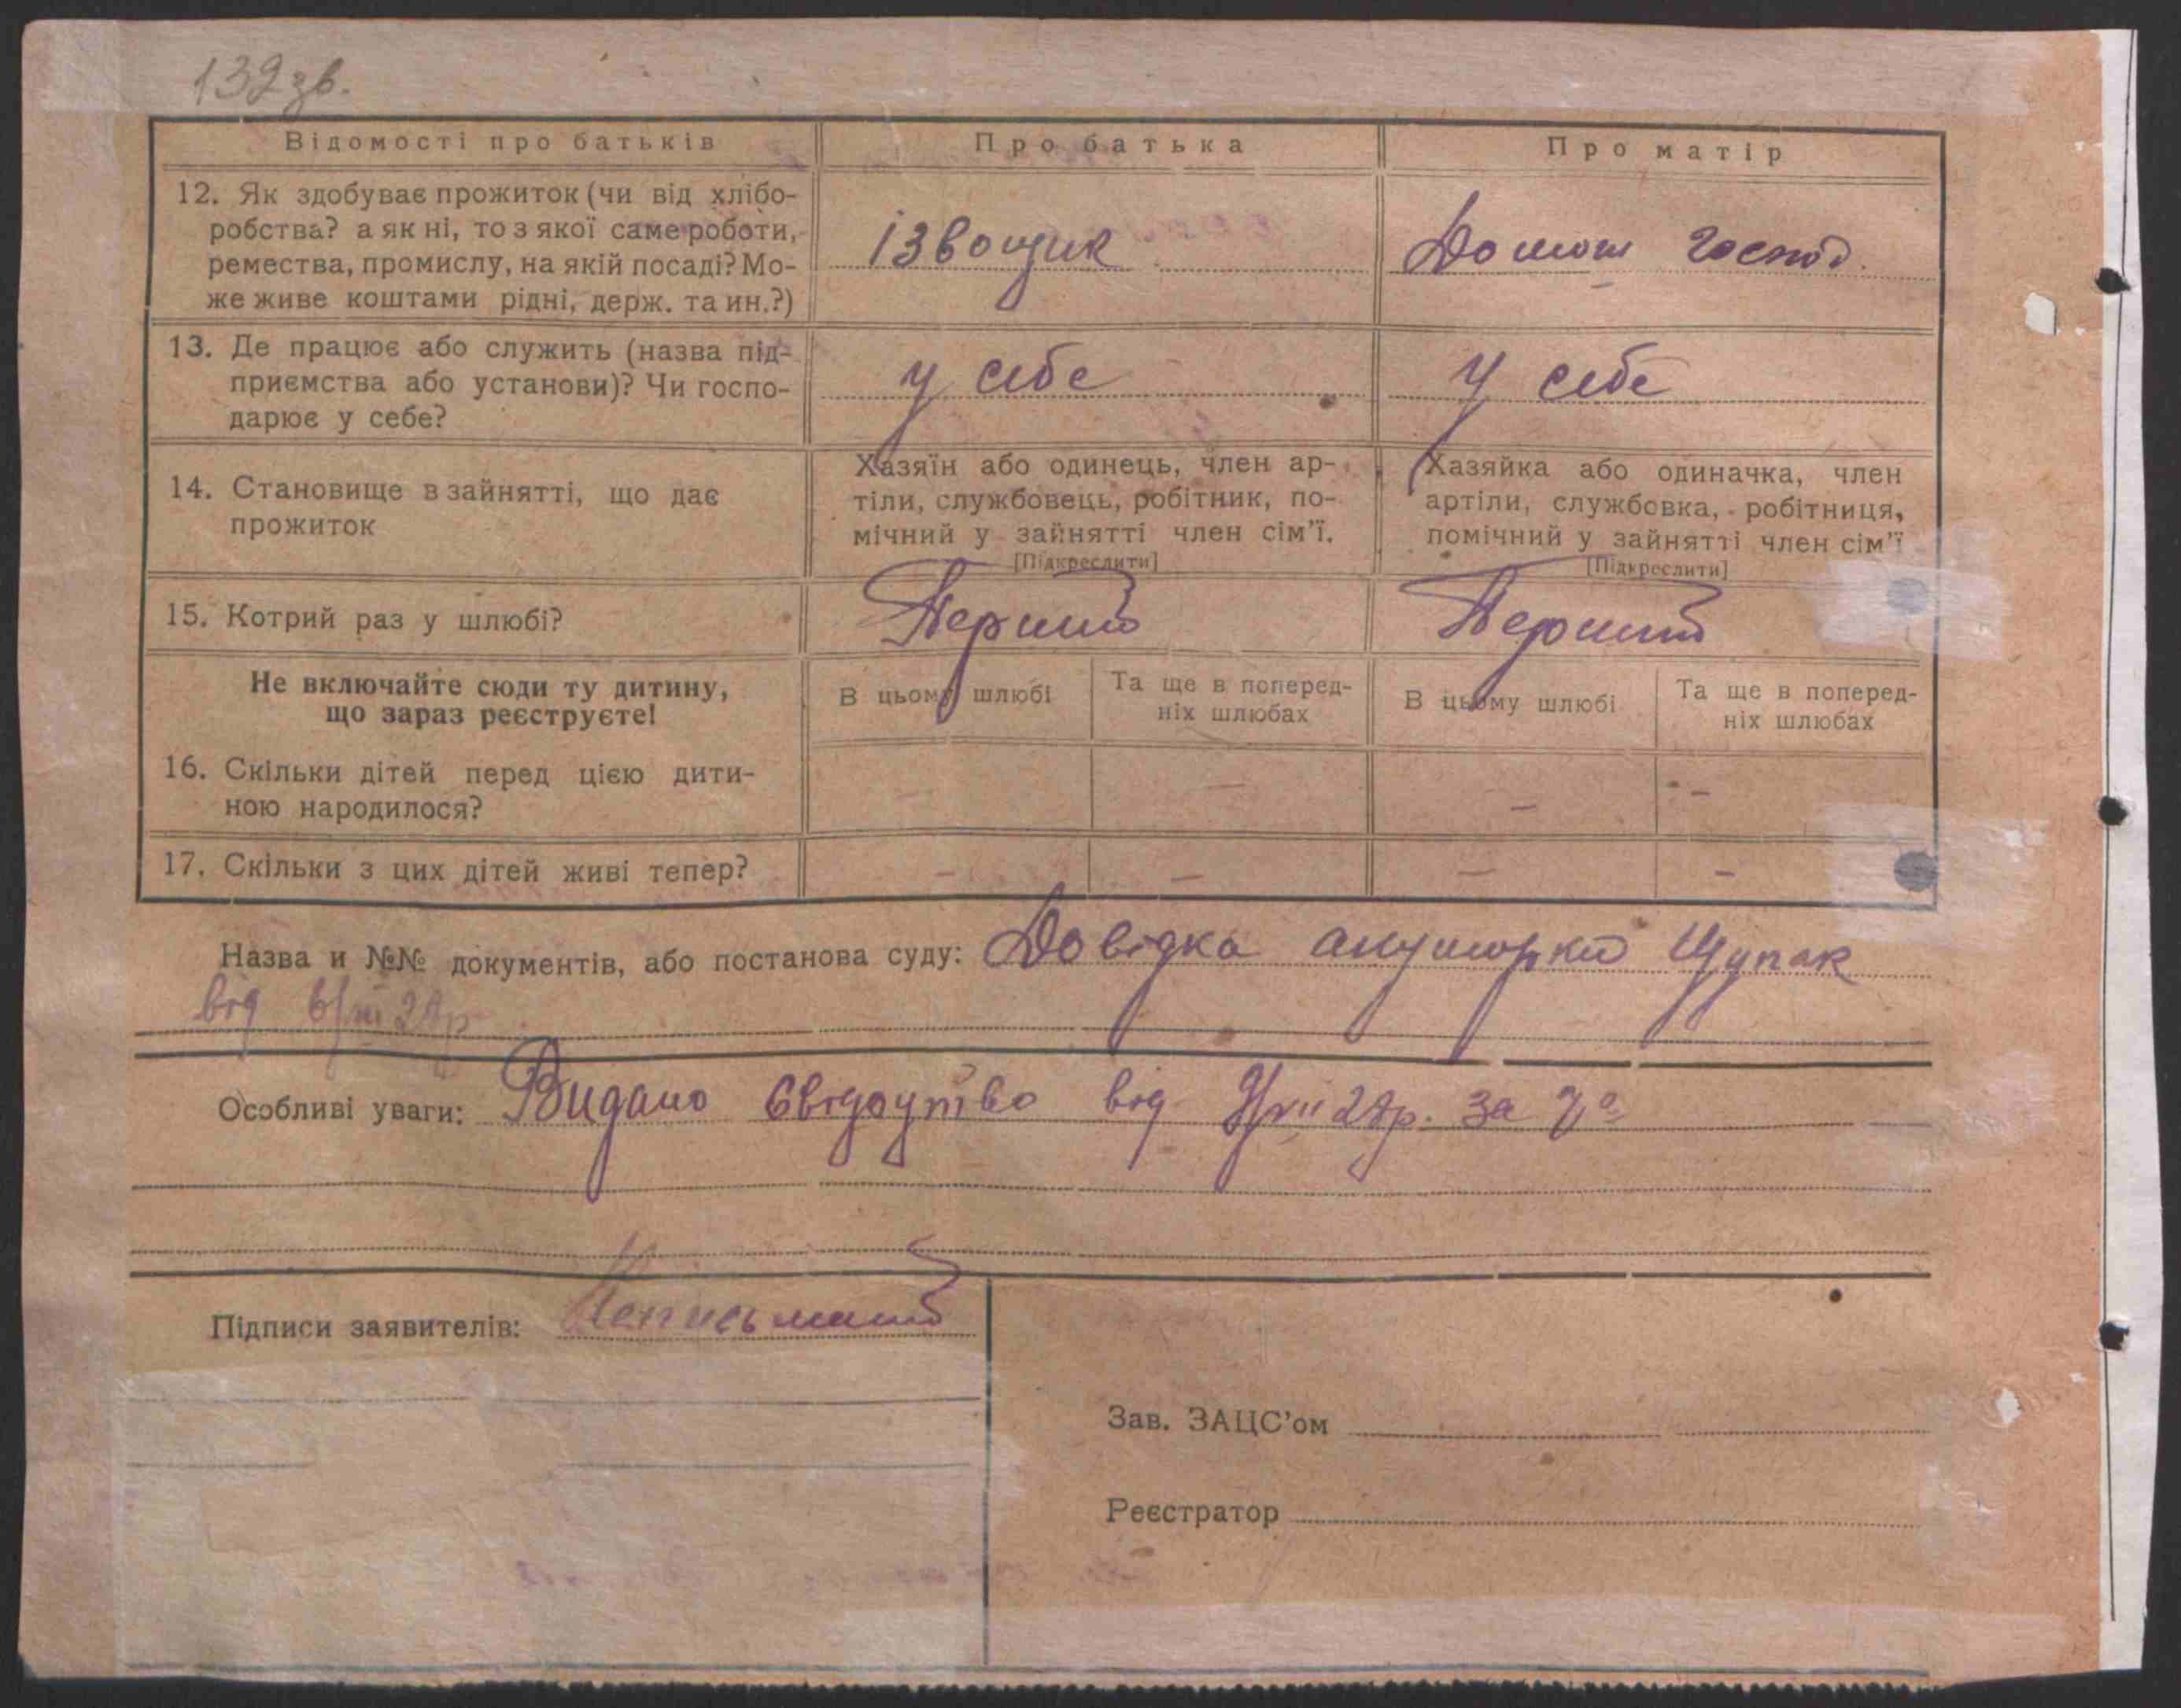 132 зв.
Відомості про батьків
Про батька
Про матір
12. Як здобуває прожиток (чи від хлібо-
робства? а як ні, то з якої саме роботи,
ремества, промислу, на якій посаді? Мо-
же живе коштами рідні, держ. та ин.?)
ізвощик
Домаш господ.
13. Де працює або служить (назва під-
приємства або установи)? Чи госпо-
дарює у себе?
у себе
у себе
14. Становище в зайнятті, що дає
прожиток
Хазяїн або одинець, член ар-
тіли, службовець, робітник, по-
мічний у зайнятті член сім'ї.
[Підкреслити]
Хазяйка або одиначка, член
артіли, службовка, робітниця,
помічний у зайнятті член сім'ї
[Підкреслити]
15. Котрий раз у шлюбі?
Перший
Перший
Не включайте сюди ту дитину,
що зараз реєструєте!
В цьому шлюбі
Та ще в поперед-
ніх шлюбах
В цьому шлюбі
Та ще в поперед-
ніх шлюбах
16. Скільки дітей перед цією дити-
ною народилося?
– – – –
17. Скільки з цих дітей живі тепер?
– – – –
Назва и №№ документів, або постанова суду: Довідка акушорки Щупак
від
Особливі уваги: Видано Свідоцтво від за
Підписи заявителів: Неписьмений
Зав. ЗАЦС'ом
Реєстратор